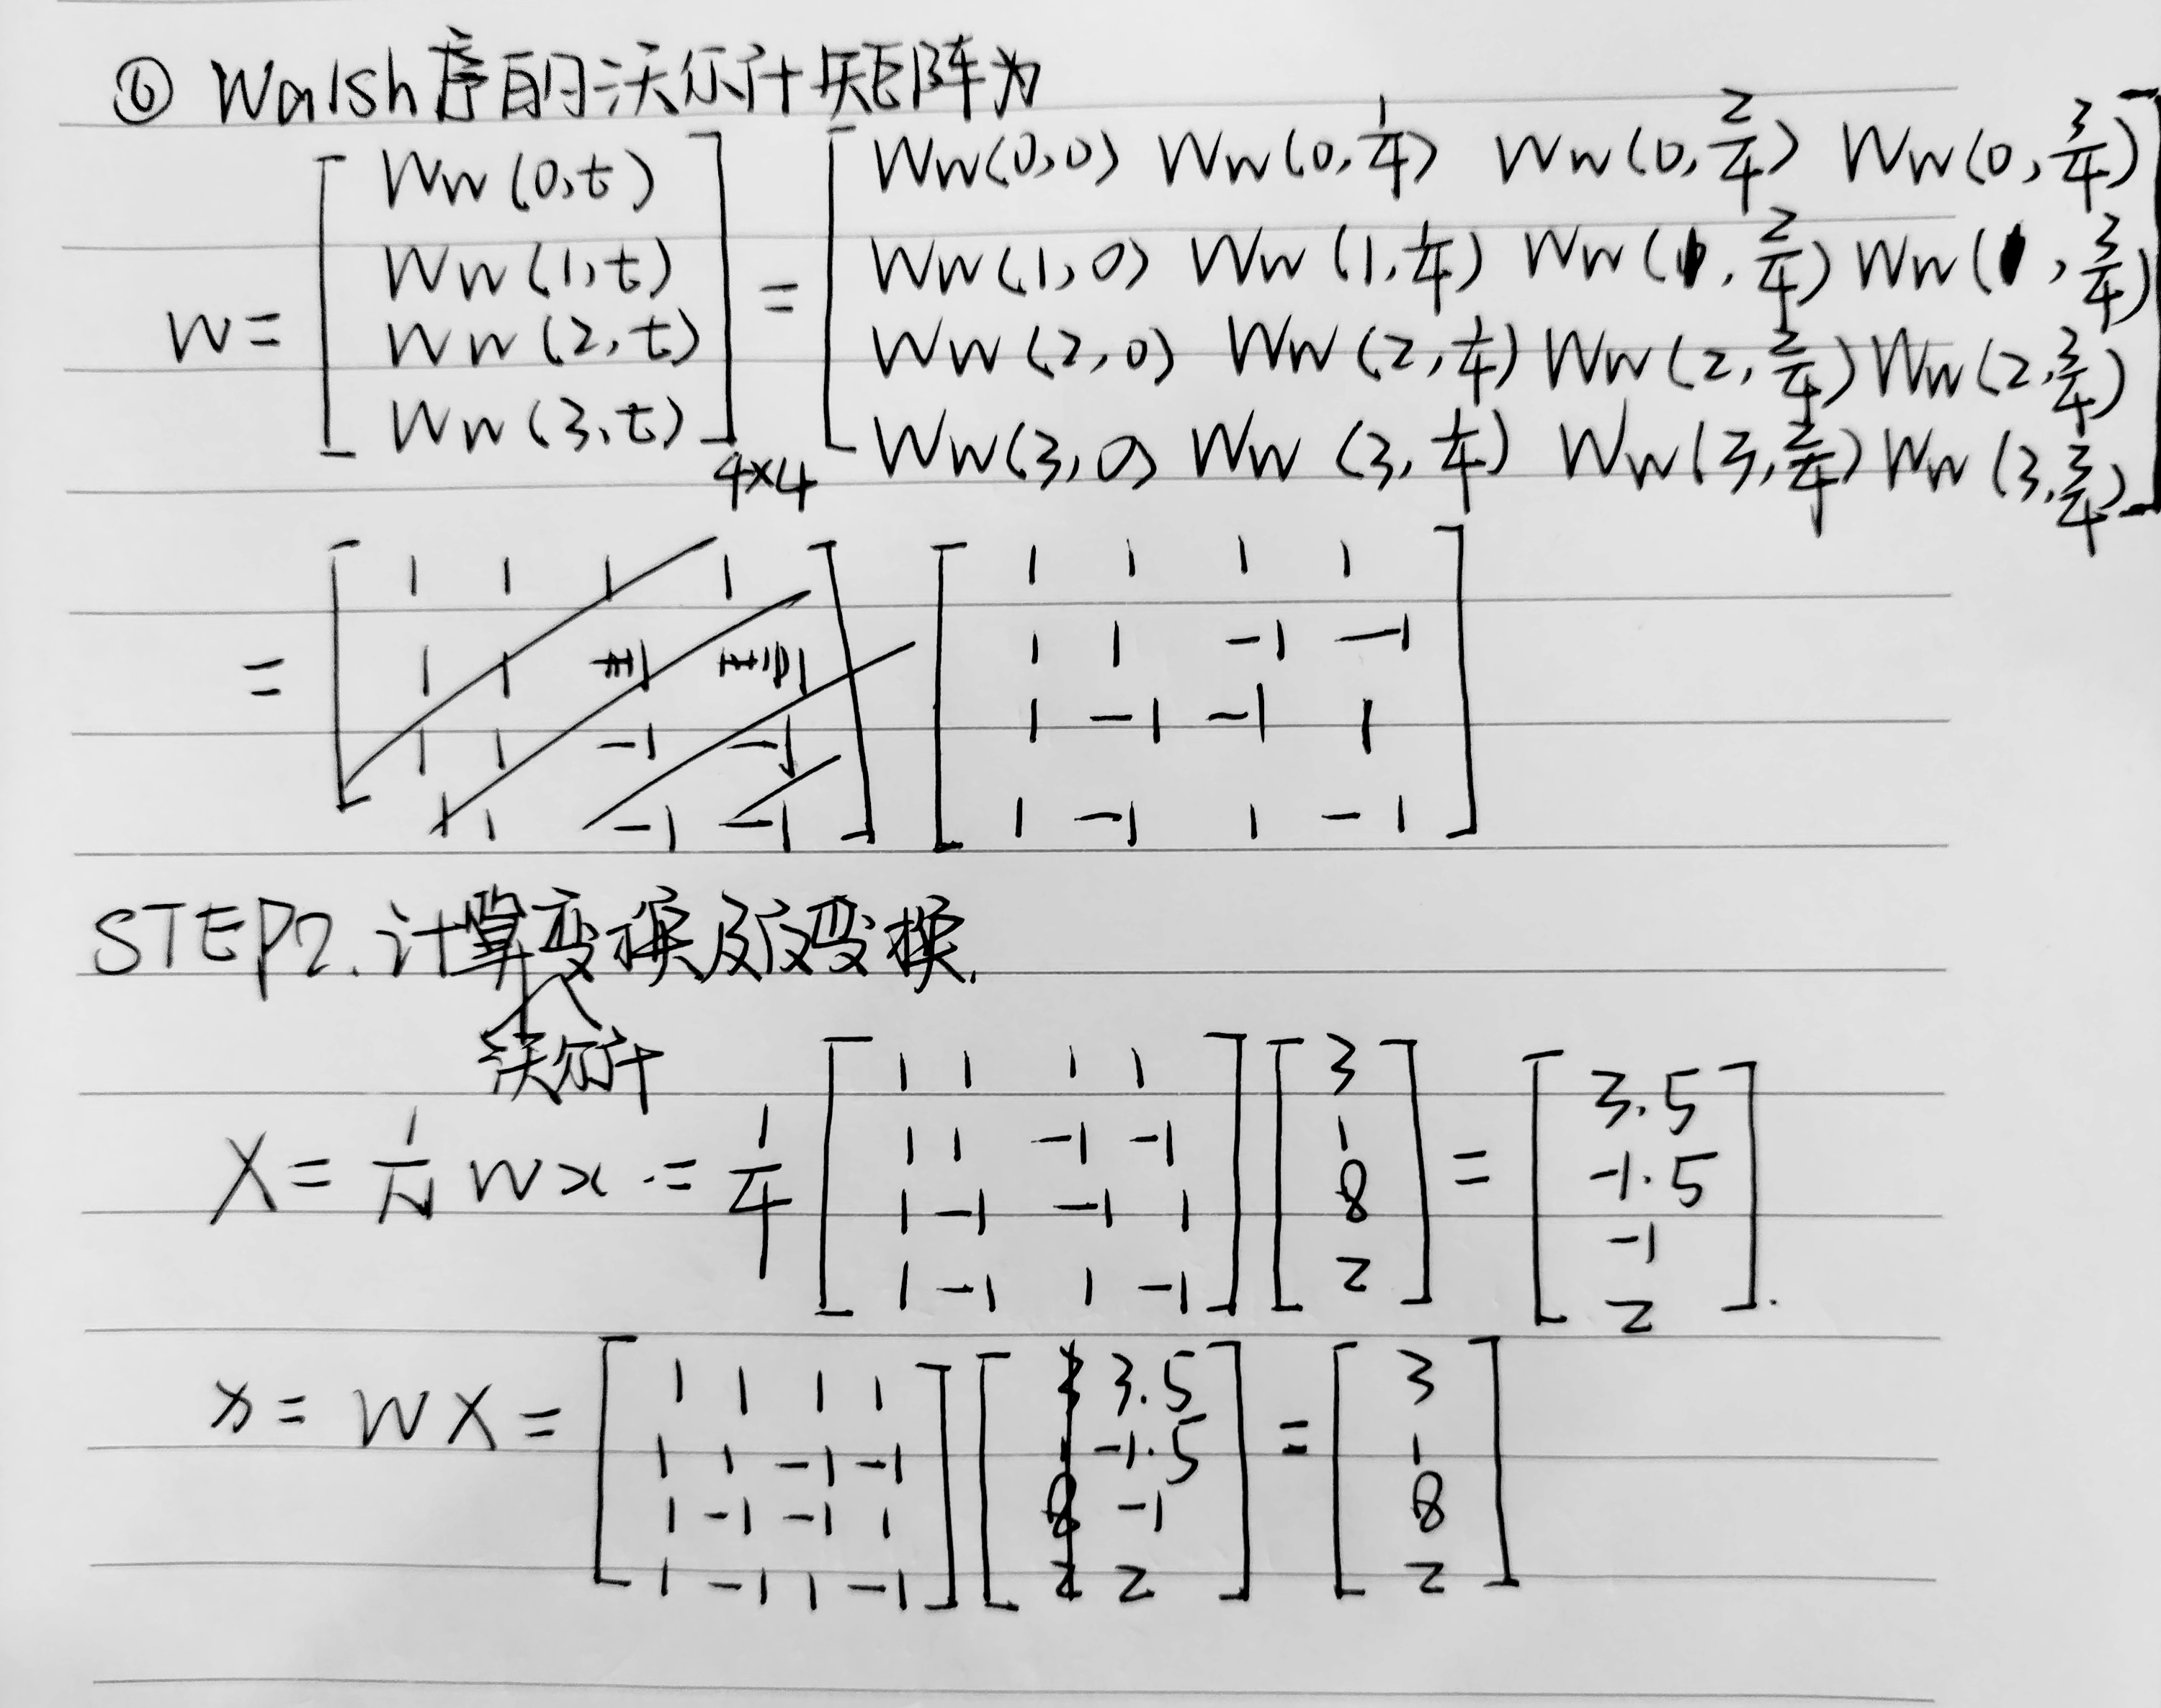 ⑥ Walsh序的沃尔什矩阵为
W = [ Ww(0,t) Ww(1,t) Ww(2,t) Ww(3,t) ]4×4 = [ Ww(0,0) Ww(0,1/4) Ww(0,2/4) Ww(0,3/4)
Ww(1,0) Ww(1,1/4) Ww(1,2/4) Ww(1,3/4)
Ww(2,0) Ww(2,1/4) Ww(2,2/4) Ww(2,3/4)
Ww(3,0) Ww(3,1/4) Ww(3,2/4) Ww(3,3/4) ]
= [ 1 1 1 1
1 1 -1 -1
1 -1 -1 1
1 -1 1 -1 ]
STEP2. 计算沃尔什变换及反变换.
X = 1/N Wx = 1/4 [ 1 1 1 1
1 1 -1 -1
1 -1 -1 1
1 -1 1 -1 ] [ 3 1 8 2 ] = [ 3.5 -1.5 -1 2 ].
x = WX = [ 1 1 1 1
1 1 -1 -1
1 -1 -1 1
1 -1 1 -1 ] [ 3.5 -1.5 -1 2 ] = [ 3 1 8 2 ]